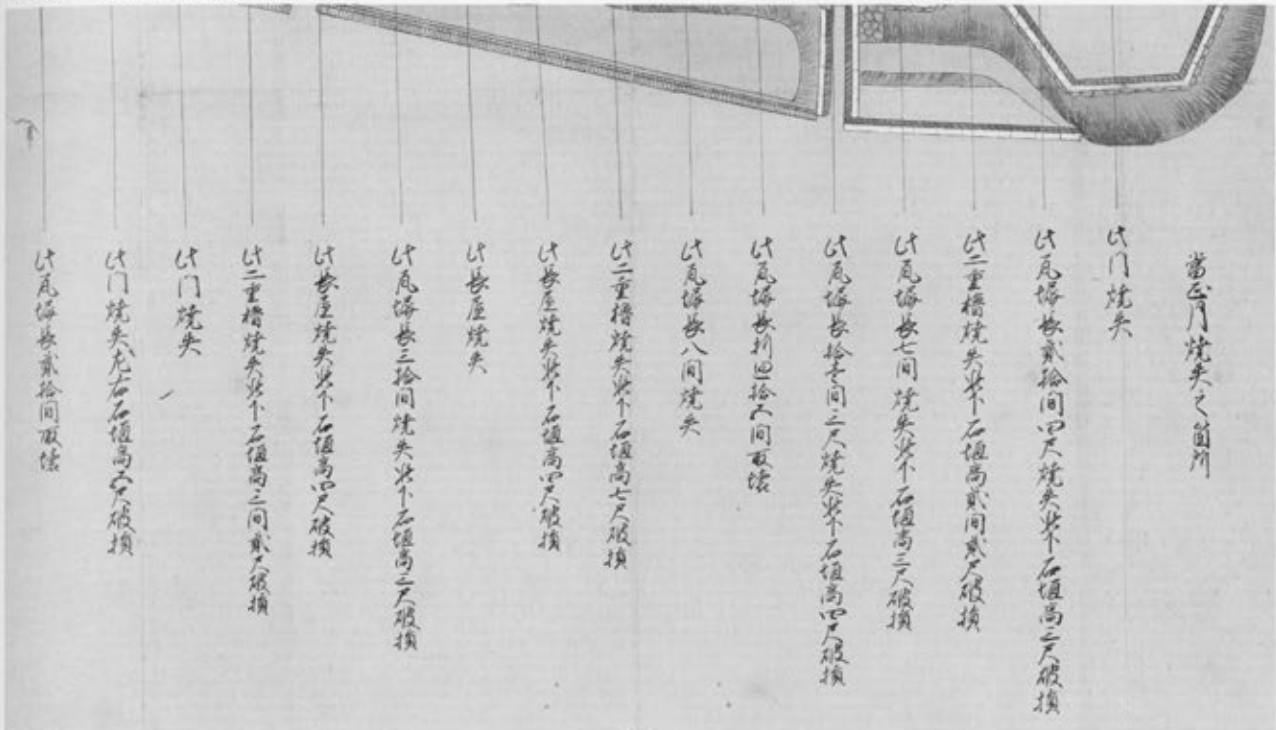 當正月焼失之箇所
此门焼失
此瓦塀長貳拾間四尺焼失其下石垣高三尺破損
此二重櫓焼失其下石垣高貳間貳尺破損
此瓦塀長七間焼失其下石垣高三尺破損
此瓦塀長拾壱間三尺焼失其下石垣高四尺破損
此瓦塀長折廻拾五間取壊
此瓦塀長八間焼失
此二重櫓焼失其下石垣高七尺破損
此長屋焼失其下石垣高四尺破損
此長屋焼失
此瓦塀長三拾間焼失其下石垣高三尺破損
此長屋焼失其下石垣高四尺破損
此二重櫓焼失其下石垣高三間貳尺破損
此门焼失
此门焼失左右石垣高五尺破損
此瓦塀長貳拾間取壊